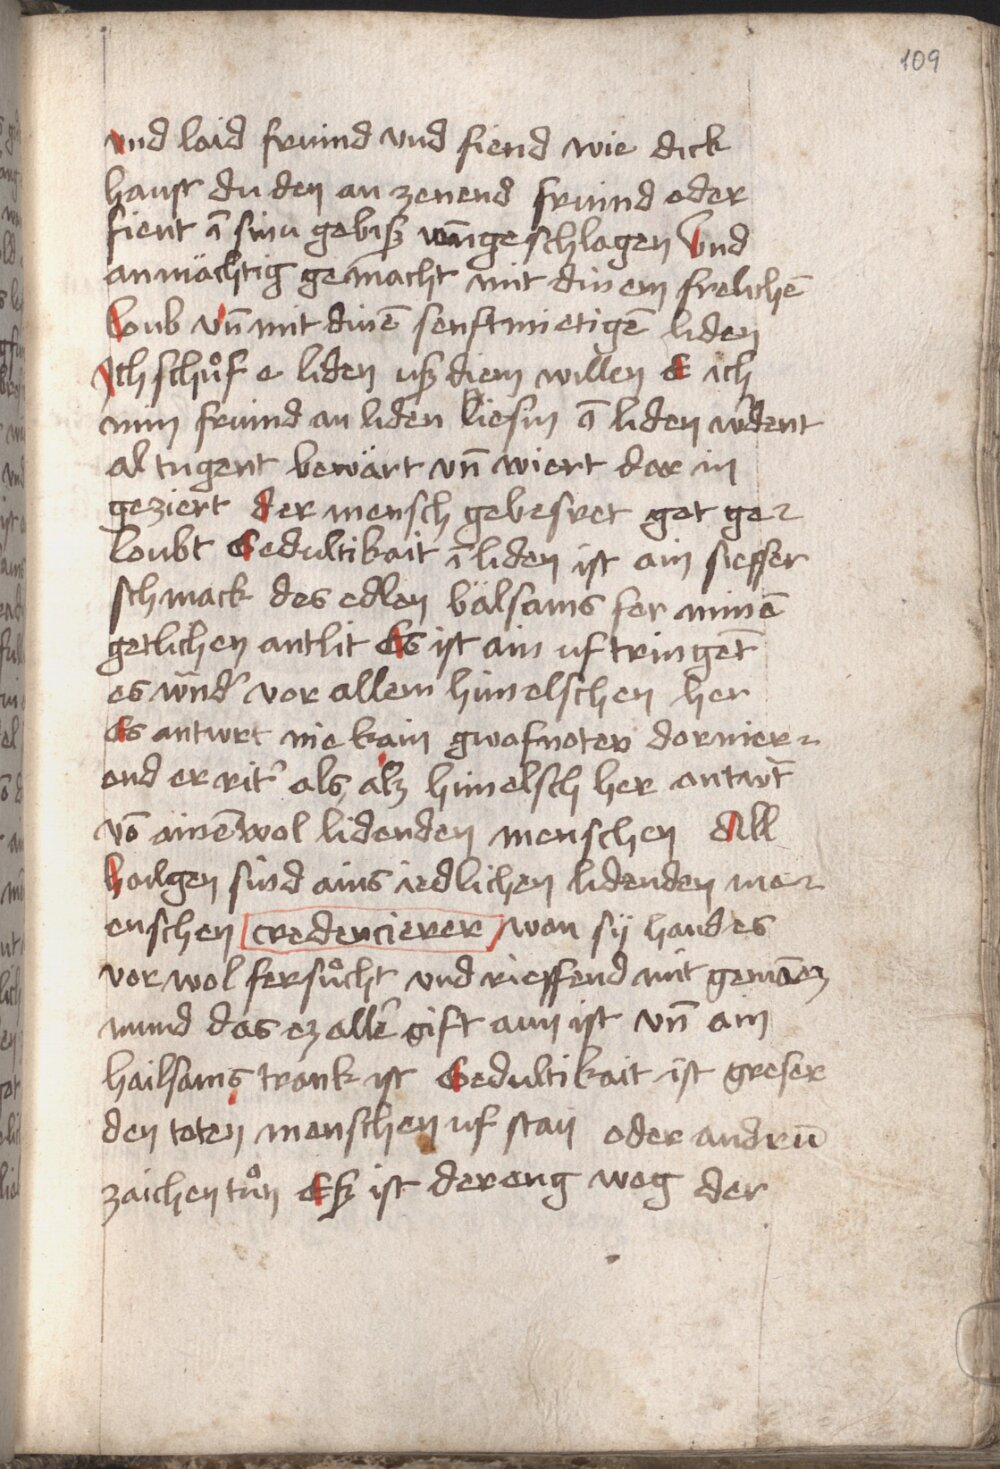 109
vnd laid fruind vnd fiend wie dick
haust du den an zenend fruind oder
fient ī sinu gebiß vmgeschlagen Vnd
anmächtig gemacht mit dinem frelichē
loub vn̄ mit dinē senftmietigē liden
Ich schůf e liden uß diem willen E ich
min fruind an liden liesin ī liden wʼdent
al tugent bewärt vn̄ wiert dar in
geziert der mensch gebesret got ge-
loubt Gedultikait ī liden ist ain siesser
schmack des edlen bälsams for minē
getlichen antlit Es ist ain uf tringēt
es wūdʼ vor allem himelschen her
Es antwrt nie kain gwafnoter dornier-
end er ritʼ als alz himelsch her antwt̄
vō ainē wol lidenden menschen All
hailgen sind ains iedlichen lidenden me-
enschen credencierer wan sÿ hand es
vor wol fersůcht vnd rieffend mit gemāēz
mund das ez allē gift aun ist vn̄ ain
hailsams trank ist Gedultikait ist greser
den toten menschen uf stan oder andrū
zaichen tůn Eß ist der eng weg der